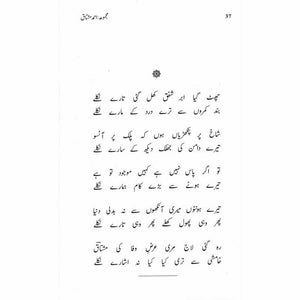 مجموعہ: احمد مشتاق
37
چھٹ گیا ابر شفق کھل گئی تارے نکلے
بند کمروں سے ترے درد کے مارے نکلے
شاخ پر پنکھڑیاں ہوں کہ پلک پر آنسو
تیرے دامن کی جھلک دیکھ کے سارے نکلے
تو اگر پاس نہیں ہے کہیں موجود تو ہے
تیرے ہونے سے بڑے کام ہمارے نکلے
تیرے ہونٹوں میری آنکھوں سے نہ بدلی دنیا
پھر وہی پھول کھلے پھر وہی تارے نکلے
رہ گئی لاج مری عرض وفا کی مشتاقؔ
خامشی سے تری کیا کیا نہ اشارے نکلے